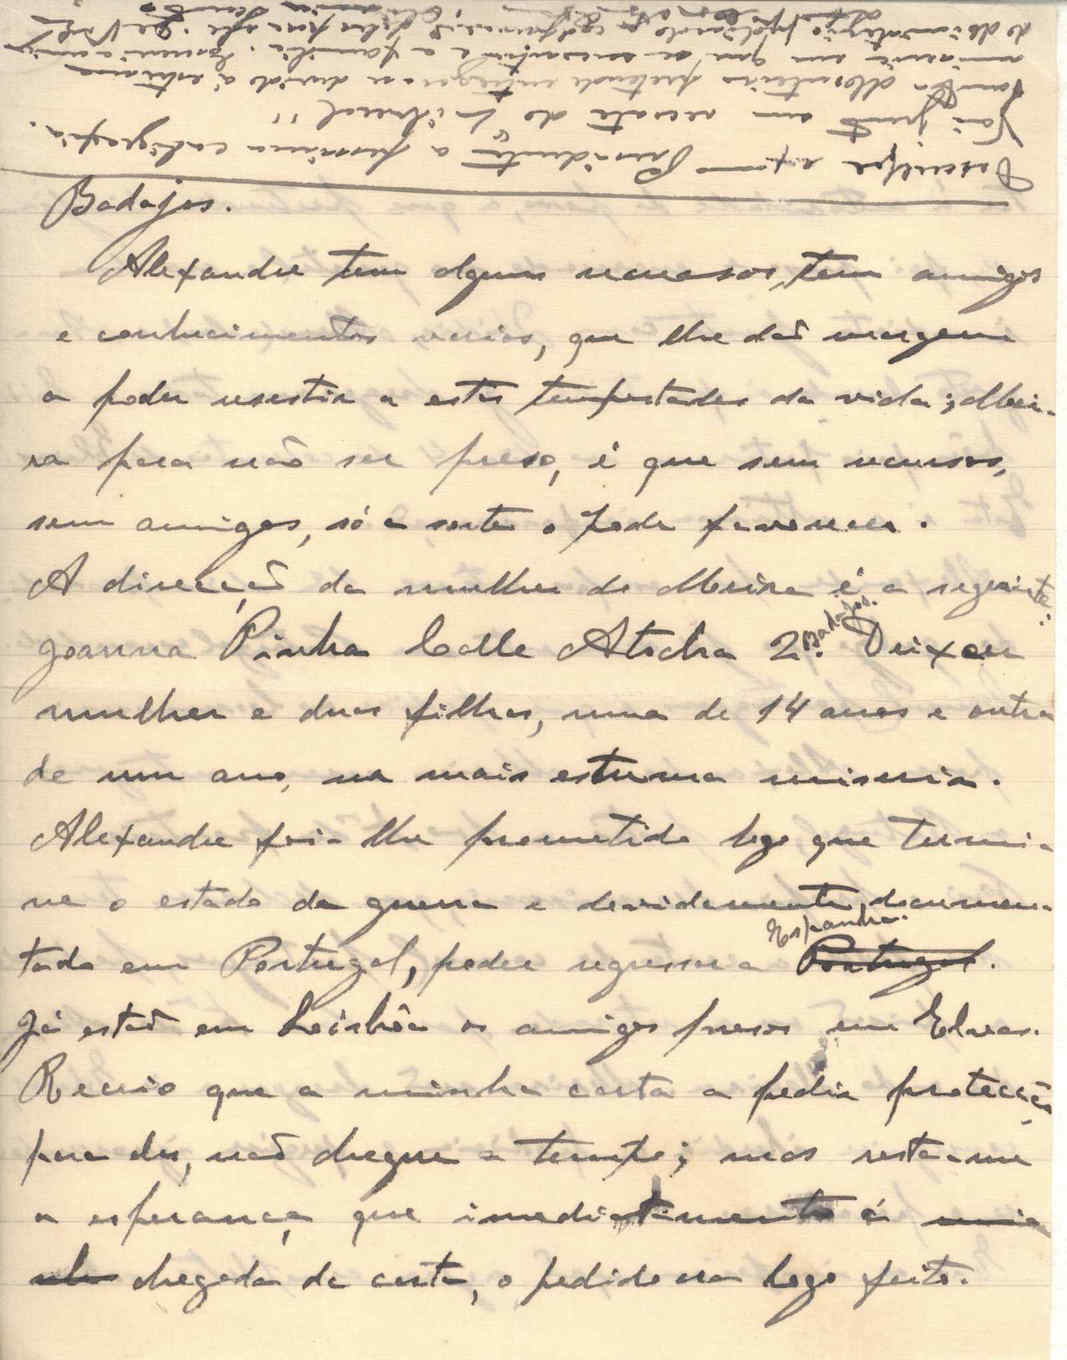 Desculpe exmo Presidente a pessima caligrafia.
Vai junto um recorte do Liberal!!
familia
Badajos.
Alexandre tem alguns recursos, tem amigos
e conhecimentos varios, que lhe dão margem
a poder resistir a estas tempestades da vida; Mei-
ra para não ser preso, é que sem recursos,
sem amigos, só a sorte o pode favorecer.
A direcção da mulher do Meira é a seguinte:
Joanna Pinha Calle Atocha 2º. Badajos. Deixou
mulher e duas filhas, uma de 14 anos e outra
de um ano, na mais extrema miseria.
Alexandre foi-lhe prometido logo que termi-
ne o estado da guerra e devidamente documen-
tado em Portugal, poder regressar a Portugal. Espanha.
Já estão em Lisbôa os amigos presos em Elvas.
Receio que a minha carta a pedir protecção
para eles, não chegue a tempo; mas resta-me
a esperança, que imediatamente á
chegada da carta, o pedido era logo feito.